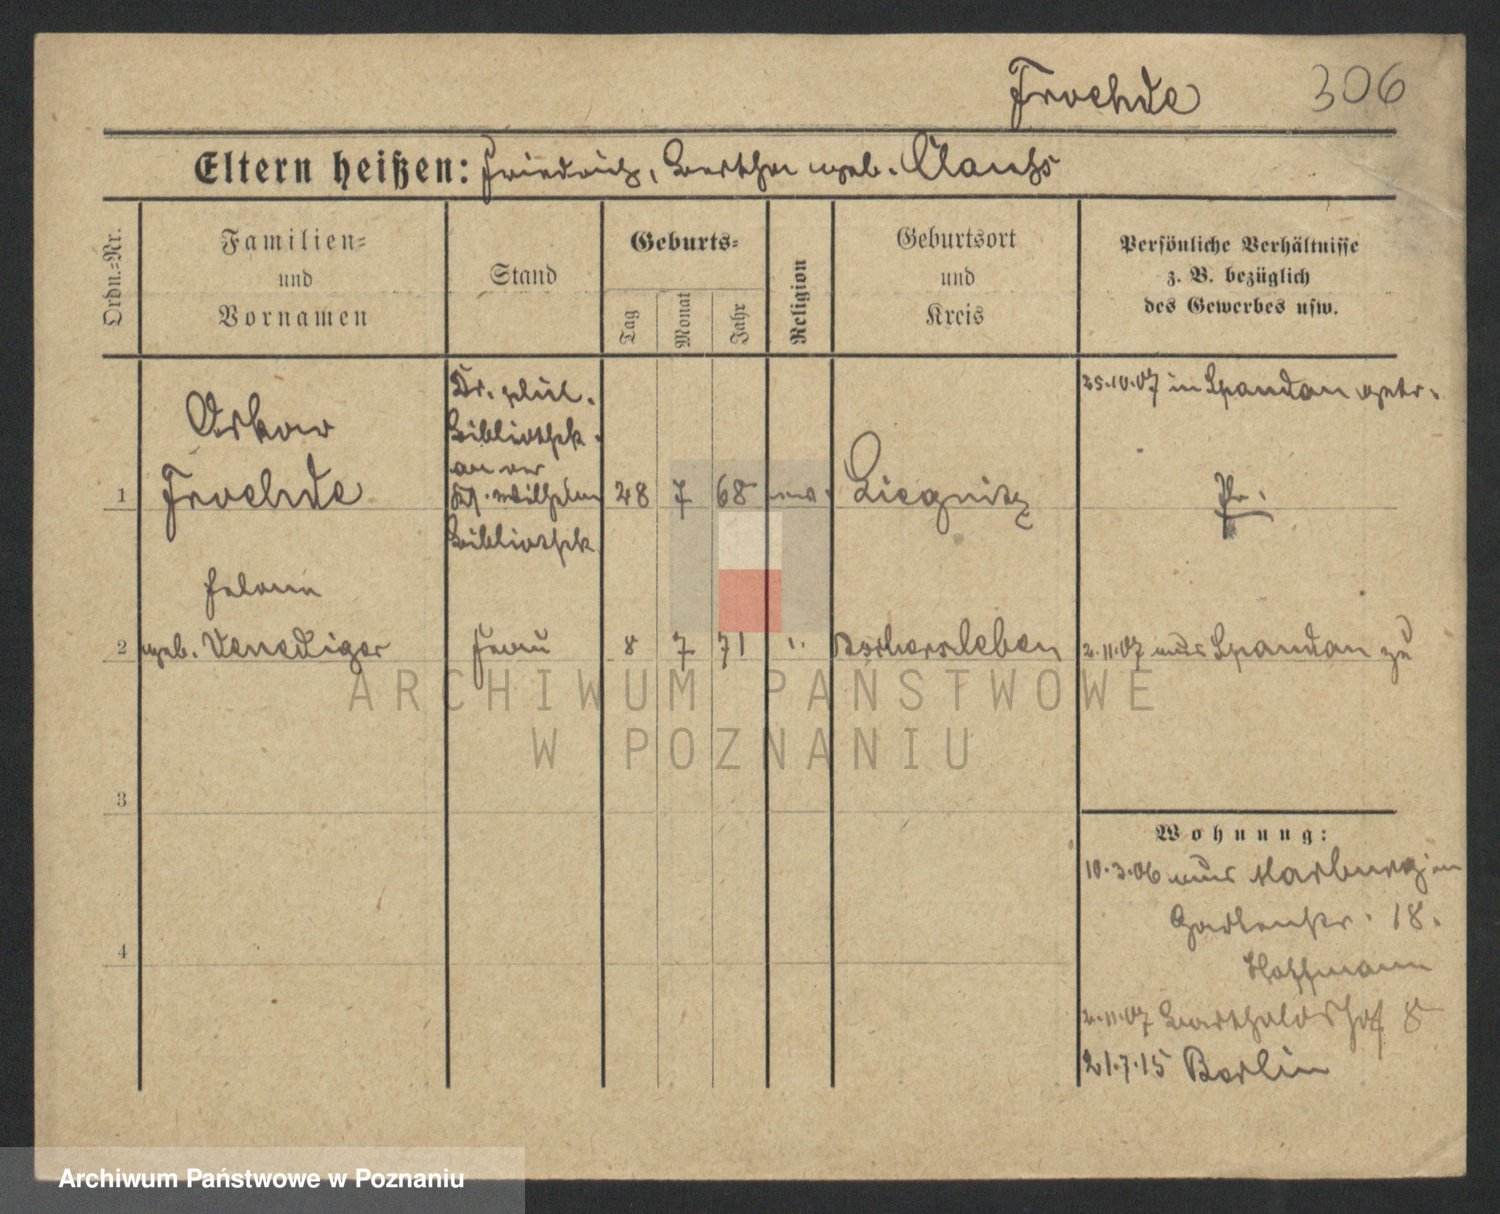 Froehde 306
Eltern heißen: Friedrich, Bertha geb. Clauß
Ordn.-Nr.
Familien-
und
Vornamen
Stand
Geburts-
Tag
Monat
Jahr
Religion
Geburtsort
und
Kreis
Persönliche Verhältnisse
z. B. bezüglich
des Gewerbes usw.
25.10.07 in Spandau getr.
Dr. phil.
Oskar
Bibliothek.
an der
1 Froehde Ks. Wilhelm 28 7 68 Liegnitz Pr.
Bibliothek
Helene
2 geb. Venediger Frau 8 7 71 " Oschersleben 2.11.07 aus Spandau zu
ARCHIWUM PAŃSTWOWE
W POZNANIU
3
Wohnung:
10.3.06 aus Marburg in
Gartenstr. 18.
4
Hoffmann
2.11.07 Bartholdshof 8
21.7.15 Berlin
Archiwum Państwowe w Poznaniu